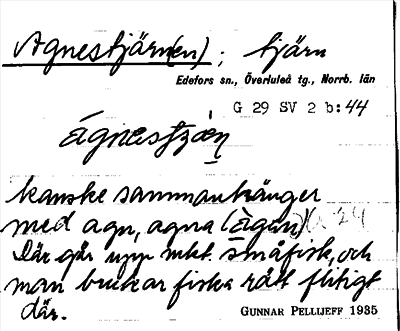 Agnestjärn(en); tjärn
Edefors sn., Överluleå tg., Norrb. län
G 29 SV 2 b:44
kanske sammanhänger
med agn, agna (ägan)
Där går upp mkt småfisk, och
man brukar fiska rätt flitigt
där.
GUNNAR PELLIJEFF 1935